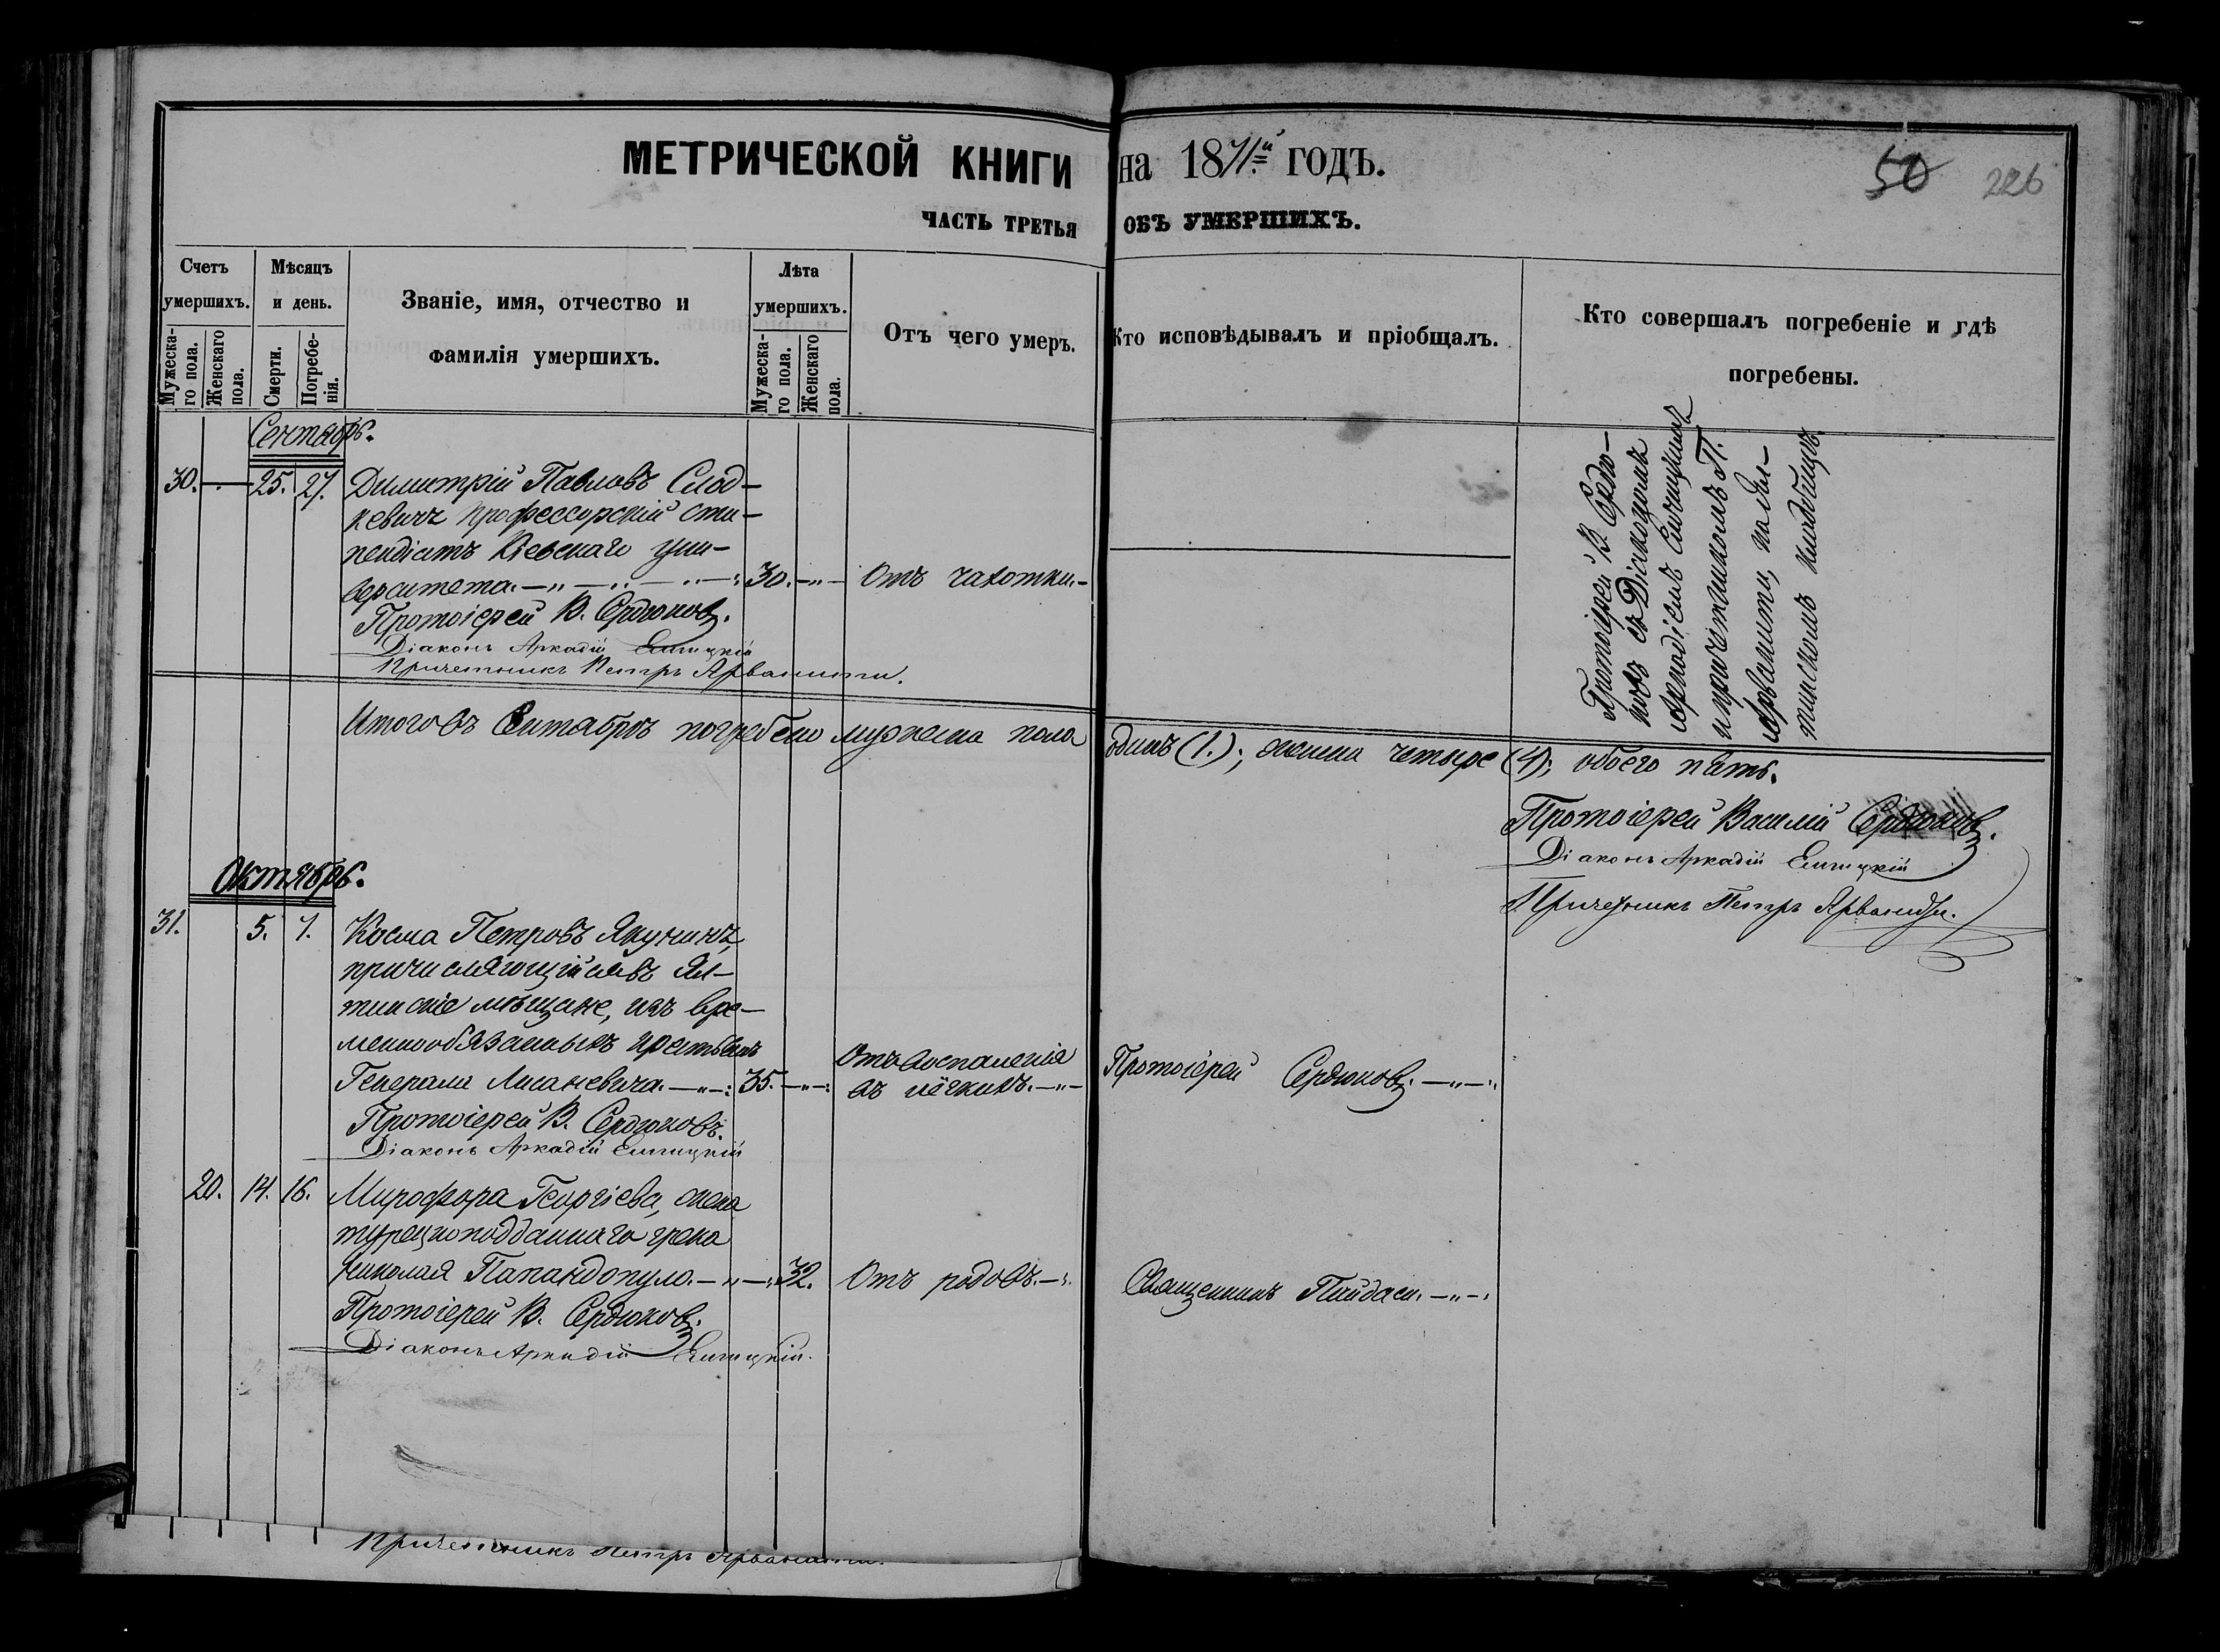 МЕТРИЧЕСКОЙ КНИГИ на 1871й ГОДЪ.
50 226
ЧАСТЬ ТРЕТЬЯ ОБЪ УМЕРШИХЪ.
Счетъ умершихъ.
Мужеска-го пола.
Женскаго пола.
Мѣсяцъ и день.
Смерти.
Погребе-нія.
Званіе, имя, отчество и
фамилія умершихъ.
Лѣта умершихъ.
Мужеска-го пола.
Женскаго пола.
Отъ чего умеръ.
Кто исповѣдывалъ и пріобщалъ.
Кто совершалъ погребеніе и гдѣ
погребены.
Сентябрь.
30. 25. 27. Димитрій Павловъ Слод-
кевичъ профессорскій сти-
пендіатъ Кіевскаго уни-
верситета. 30. Отъ чахотки.
Протоіерей В. Сердюковъ.
Діаконъ Аркадій Ешицкій
Причетникъ Петръ Арванити.
Протоіерей В. Сердю-
ковъ съ Діакономъ
Аркадіемъ
и причетникомъ П.
Арванити, на Ял-
тинскомъ кладбищѣ.
Итого въ Сентябрѣ погребено мужеска пола одинъ (1.); женска четыре (4); обоего пять.
Протоіерей Василій Сердюковъ.
Діаконъ Аркадій Ешицкій
Причетникъ Петръ Арванити.
Октябрь.
31. 5. 7. Косма Петровъ Якунинъ,
причисляющійся въ Ял-
тинскіе мѣщане, изъ вре-
меннообязанныхъ крестьянъ
Генерала Лисаневича. 35. Отъ воспаленія
въ лёгкихъ. Протоіерей Сердюковъ.
Протоіерей В. Сердюковъ.
Діаконъ Аркадій Ешицкій
20. 14. 16. Мирофора Георгіева, жена
турецкоподданнаго грека
Николая Папандопуло. 32. Отъ родовъ. Священникъ
Протоіерей В. Сердюковъ.
Діаконъ Аркадій Ешицкій.
Причетникъ Петръ Арванити.